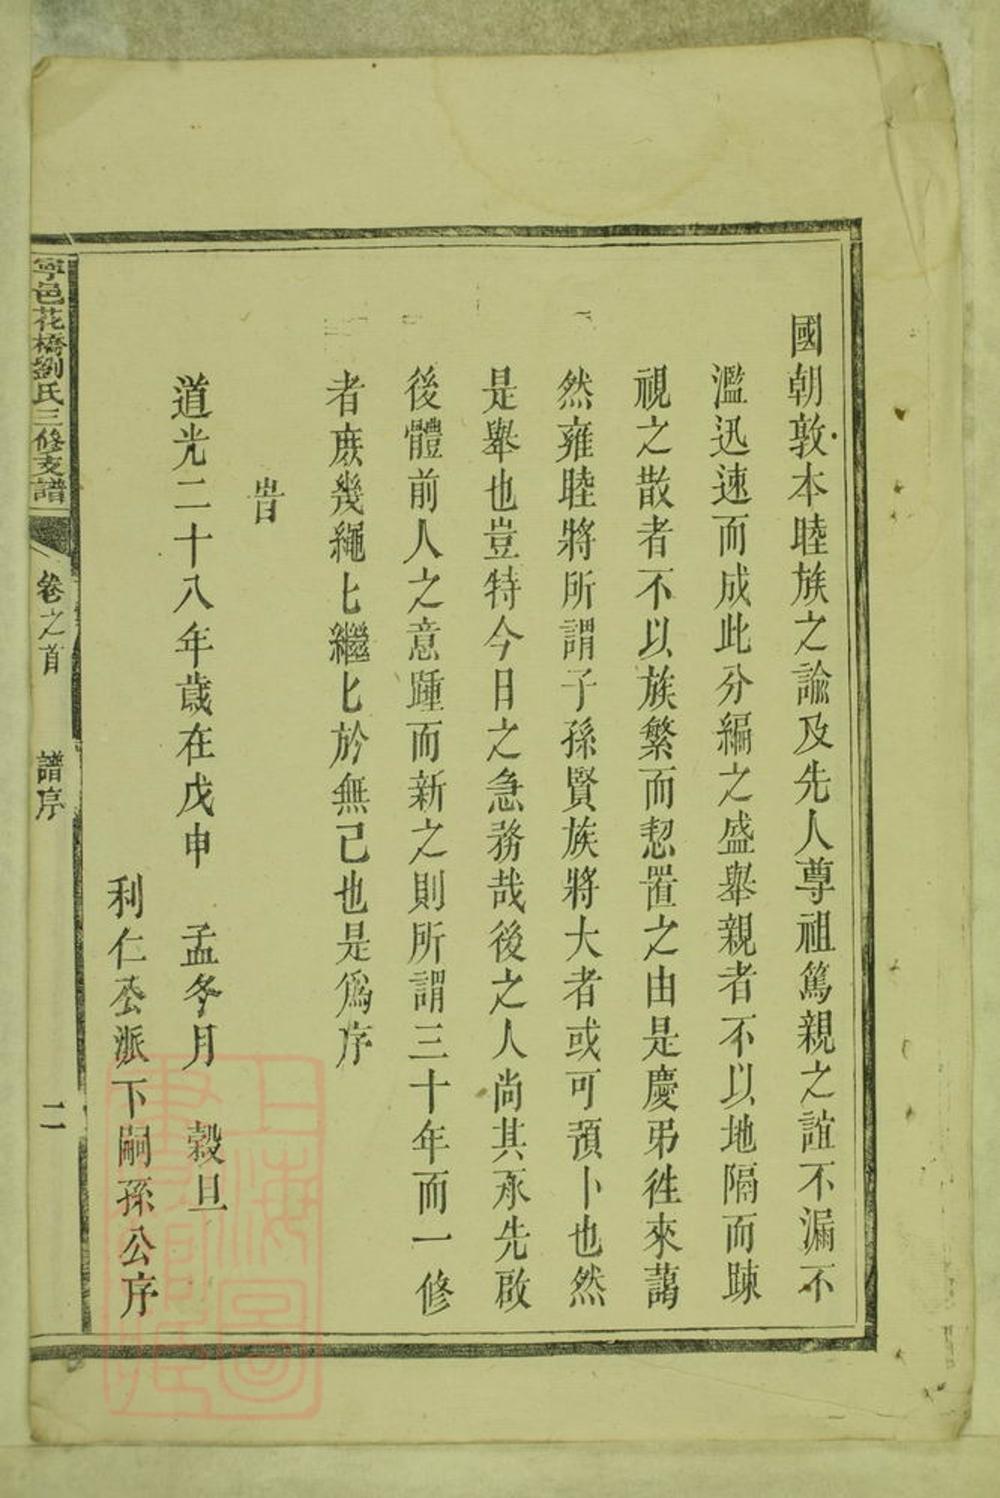 國朝敦本睦族之諭及先人尊祖篤親之誼不漏不
濫迅速而成此分編之盛舉親者不以地隔而踈
視之散者不以族繁而恝置之由是慶弔徃來藹
然雍睦將所謂子孫賢族將大者或可預卜也然
是舉也豈特今日之急務哉後之人尚其承先啟
後體前人之意踵而新之則所謂三十年而一修
者庻幾繩匕繼匕於無己也是爲序
旹
道光二十八年歲在戊申 孟冬月 穀旦
利仁公派下嗣孫公序
寧邑花橋劉氏三修支譜 卷之首 譜序 二
上海圖書館藏